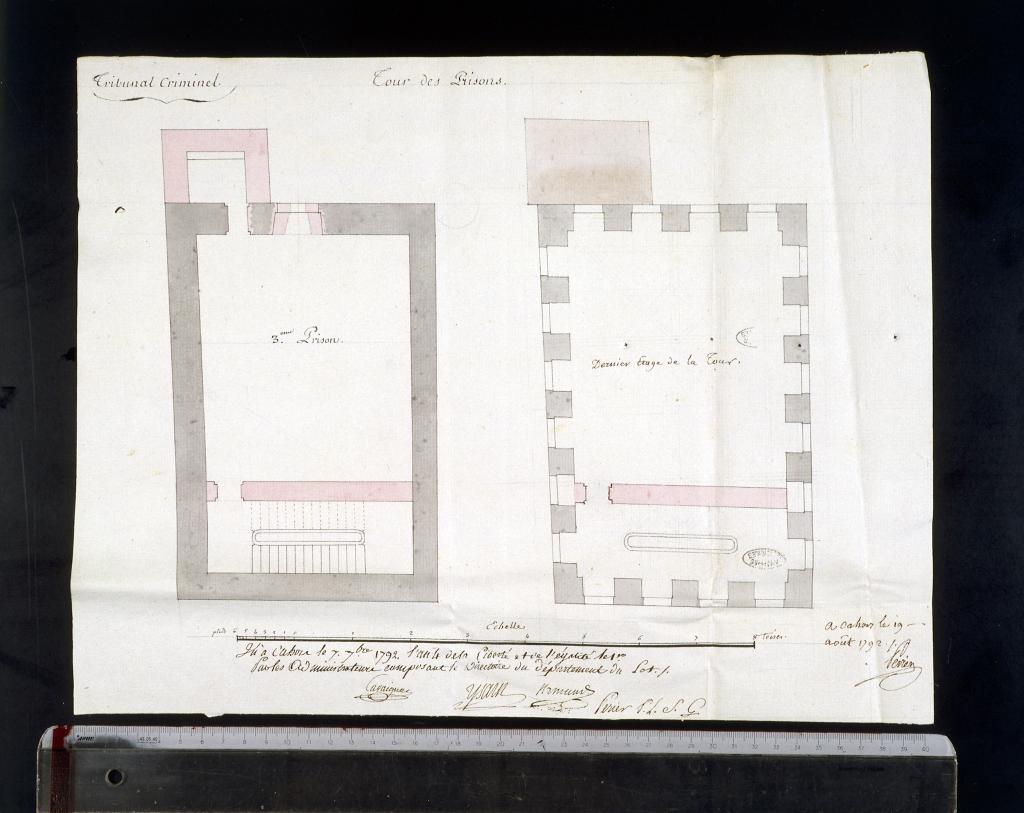 Tribunal Criminel
Tour des Prisons.
3.eme Prison.
Dernier Etage de la Tour.
Echelle
pieds 6 5 4 3 2 1 0 1 2 3 4 5 6 7 8 Toises.
A cahors le 19
août 1792
Périé
Vu à Cahors le 7. 7bre 1792 l'an 4e de la Liberté et de l'égalité le 1er
Par les Administrateurs composant le Directoire du département du Lot./.
Cavaignac
Ysarn
Armand
Perier P. S. G